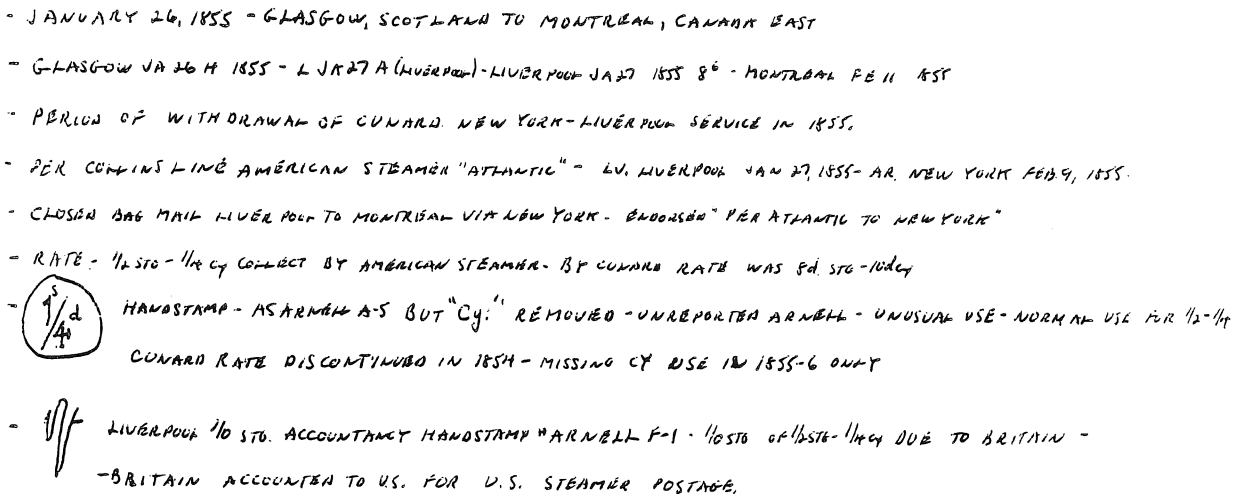 - JANUARY 26, 1855 - GLASGOW, SCOTLAND TO MONTREAL, CANADA EAST
- GLASGOW JA 26 H 1855 - L JA27 A (LIVERPOOL) - LIVERPOOL JA 27 1855 8⁶ - MONTREAL FE 11 1855
- PERIOD OF WITHDRAWAL OF CUNARD NEW YORK-LIVERPOOL SERVICE IN 1855.
- PER COLLINS LINE AMERICAN STEAMER "ATLANTIC" - LV. LIVERPOOL JAN 27, 1855 - AR. NEW YORK FEB. 9, 1855.
- CLOSED BAG MAIL LIVERPOOL TO MONTREAL VIA NEW YORK - ENDORSED "PER ATLANTIC TO NEW YORK"
- RATE - 1/2 STG - 1/4 CY COLLECT BY AMERICAN STEAMER - BY CUNARD RATE WAS 8d. STG - 10d CY
- 1s/4d HANDSTAMP - AS ARNELL A-5 BUT "Cy." REMOVED - UNREPORTED ARNELL - UNUSUAL USE - NORMAL USE FOR 1/2 - 1/4
CUNARD RATE DISCONTINUED IN 1854 - MISSING CY USE IN 1855-6 ONLY
- 1/- LIVERPOOL 1/0 STG. ACCOUNTANCY HANDSTAMP "ARNELL F-1 - 1/0 STG OF 1/2 STG - 1/4 CY DUE TO BRITAIN -
- BRITAIN ACCOUNTED TO U.S. FOR U.S. STEAMER POSTAGE.